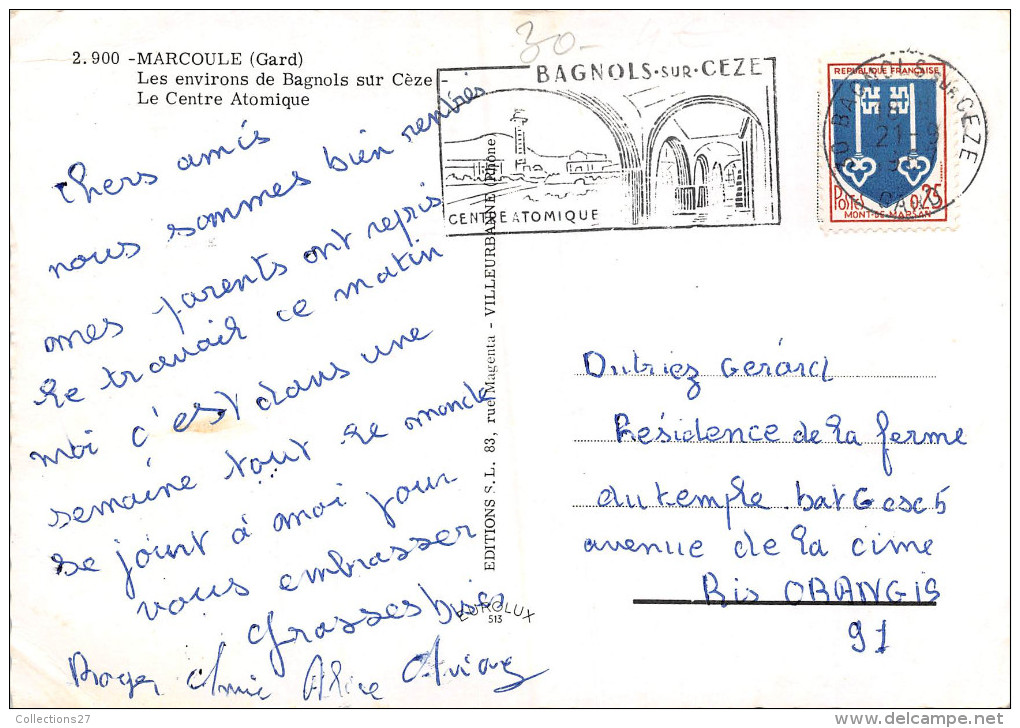 30-
2.900 -MARCOULE (Gard)
Les environs de Bagnols sur Cèze -
Le Centre Atomique
chers amis
nous sommes bien rentrés
mes parents ont repris
le travail ce matin
moi c'est dans une
semaine tout le monde
se joint à moi pour
vous embrasser
Grosses bises
Roger
EDITIONS S.L. 83, rue Magenta - VILLEURBANNE (Rhône)
EUROLUX
513
BAGNOLS-SUR-CEZE
CENTRE ATOMIQUE
30 BAGNOLS SUR CEZE
21-9
GARD
REPUBLIQUE FRANÇAISE
POSTES 0,25
MONT-DE-MARSAN
Dutriez Gerard
Résidence de la ferme
du temple bat G esc 5
avenue de la cime
Ris ORANGIS
91
Collections27
www.delcampe.net